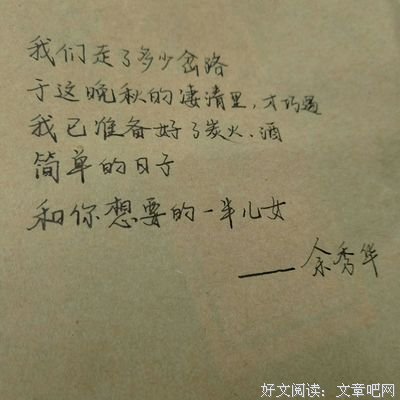 我们走了多少岔路
于这晚秋的凄清里，才巧遇
我已准备好了炭火、酒
简单的日子
和你想要的一半儿女
——余秀华
好文阅读：文章吧网